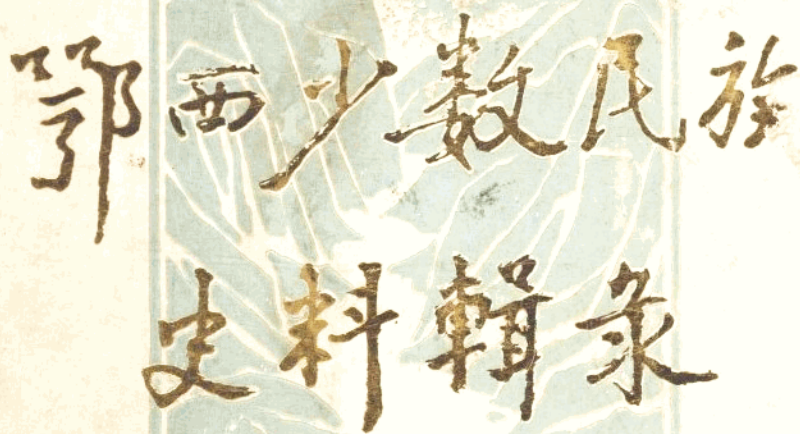 鄂西少数民族
史料輯录